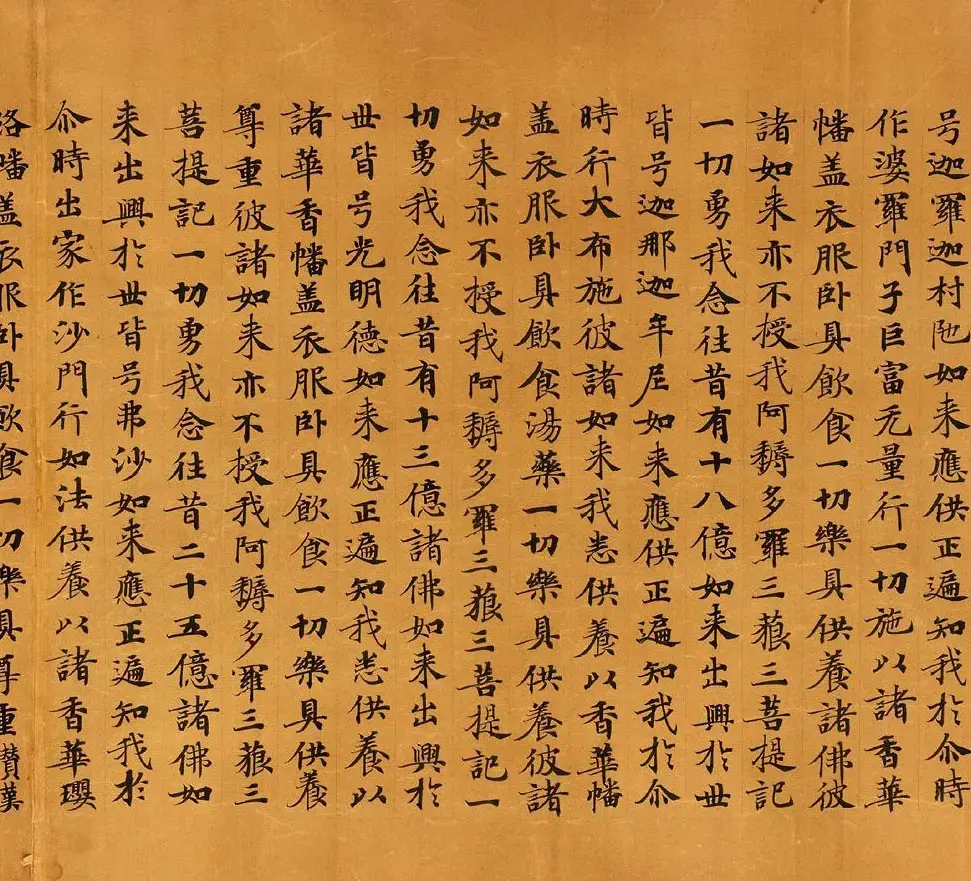 号迦羅迦村陁如来應供正遍知我於尒時
作婆羅門子巨富无量行一切施以諸香華
幡盖衣服卧具飲食一切樂具供養諸佛彼
諸如来亦不授我阿耨多羅三藐三菩提記
一切勇我念往昔有十八億如来出興於世
皆号迦那迦牟尼如来應供正遍知我於尒
時行大布施彼諸如来我悉供養以香華幡
盖衣服卧具飲食湯藥一切樂具供養彼諸
如来亦不授我阿耨多羅三藐三菩提記一
切勇我念往昔有十三億諸佛如来出興於
世皆号光明德如来應正遍知我悉供養以
諸華香幡盖衣服卧具飲食一切樂具供養
尊重彼諸如来亦不授我阿耨多羅三藐三
菩提記一切勇我念往昔二十五億諸佛如
来出興於世皆号弗沙如来應正遍知我於
尒時出家作沙門行如法供養以諸香華瓔
珞幡盖衣服卧具飲食一切樂具尊重讃嘆